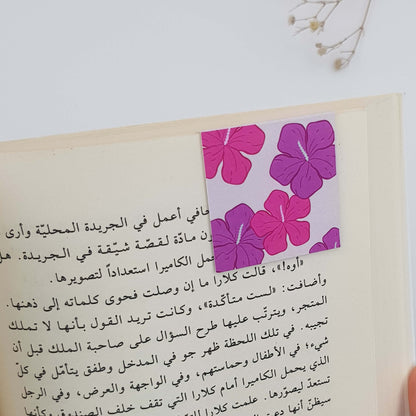 حافي أعمل في الجريدة المحليّة وأرى
ون مادّة لقصّة شيّقة في الجريدة. هل
حمل الكاميرا استعداداً لتصويرها.
«أوه!»، قالت كلارا ما إن وصلت فحوى كلماته إلى ذهنها.
وأضافت: «لست متأكّدة»، وكانت تريد القول بأنها لا تملك
المتجر، ويترتّب عليها طرح السؤال على صاحبة الملك قبل أن
تجيبه. في تلك اللحظة ظهر جو في المدخل وطفق يتأمّل في كلّ
شيء؛ في الأطفال وحماستهم، وفي الواجهة والعرض، وفي الرجل
الذي يحمل الكاميرا أمام كلارا التي تقف خلف الصندوق وكأنها
تستعدّ ليصوّرها. علمت كلارا
سيظنّ أنها دعت